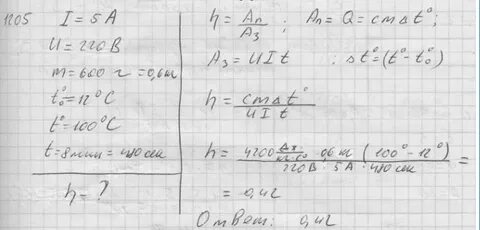 1205 I = 5 А
U = 220 В
m = 600 г = 0,6 кг
t₀° = 12° C
t° = 100° C
t = 8 мин = 480 сек
η = ?
η = Aп/Aз ; Aп = Q = cmΔt°;
Aз = UIt ; Δt° = (t° - t₀°)
η = cmΔt°/UIt
η = 4200 Дж/кг·C° · 0,6 кг (100° - 12°)/220 В · 5 А · 480 сек =
= 0,42
Ответ: 0,42